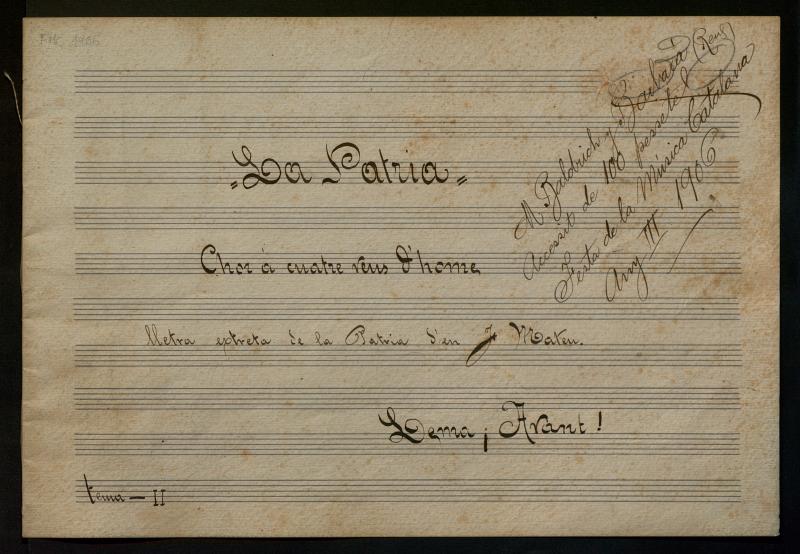 FMC, 1906
M Baldrich y Boibara (Reus)
Accessit de 100 pessetes
Festa de la Música Catalana
Any III 1906
"La Patria"
Chor á cuatre veus d'home
lletra extreta de la Patria d'en J Mateu.
Lema ¡Avant!
tema — II